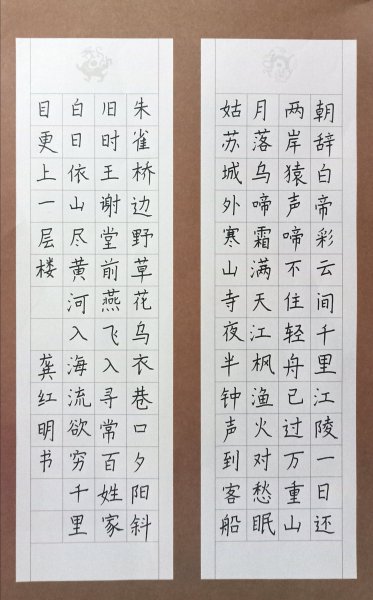 朝辞白帝彩云间千里江陵一日还
两岸猿声啼不住轻舟已过万重山
月落乌啼霜满天江枫渔火对愁眠
姑苏城外寒山寺夜半钟声到客船
朱雀桥边野草花乌衣巷口夕阳斜
旧时王谢堂前燕飞入寻常百姓家
白日依山尽黄河入海流欲穷千里
目更上一层楼 龚红明书